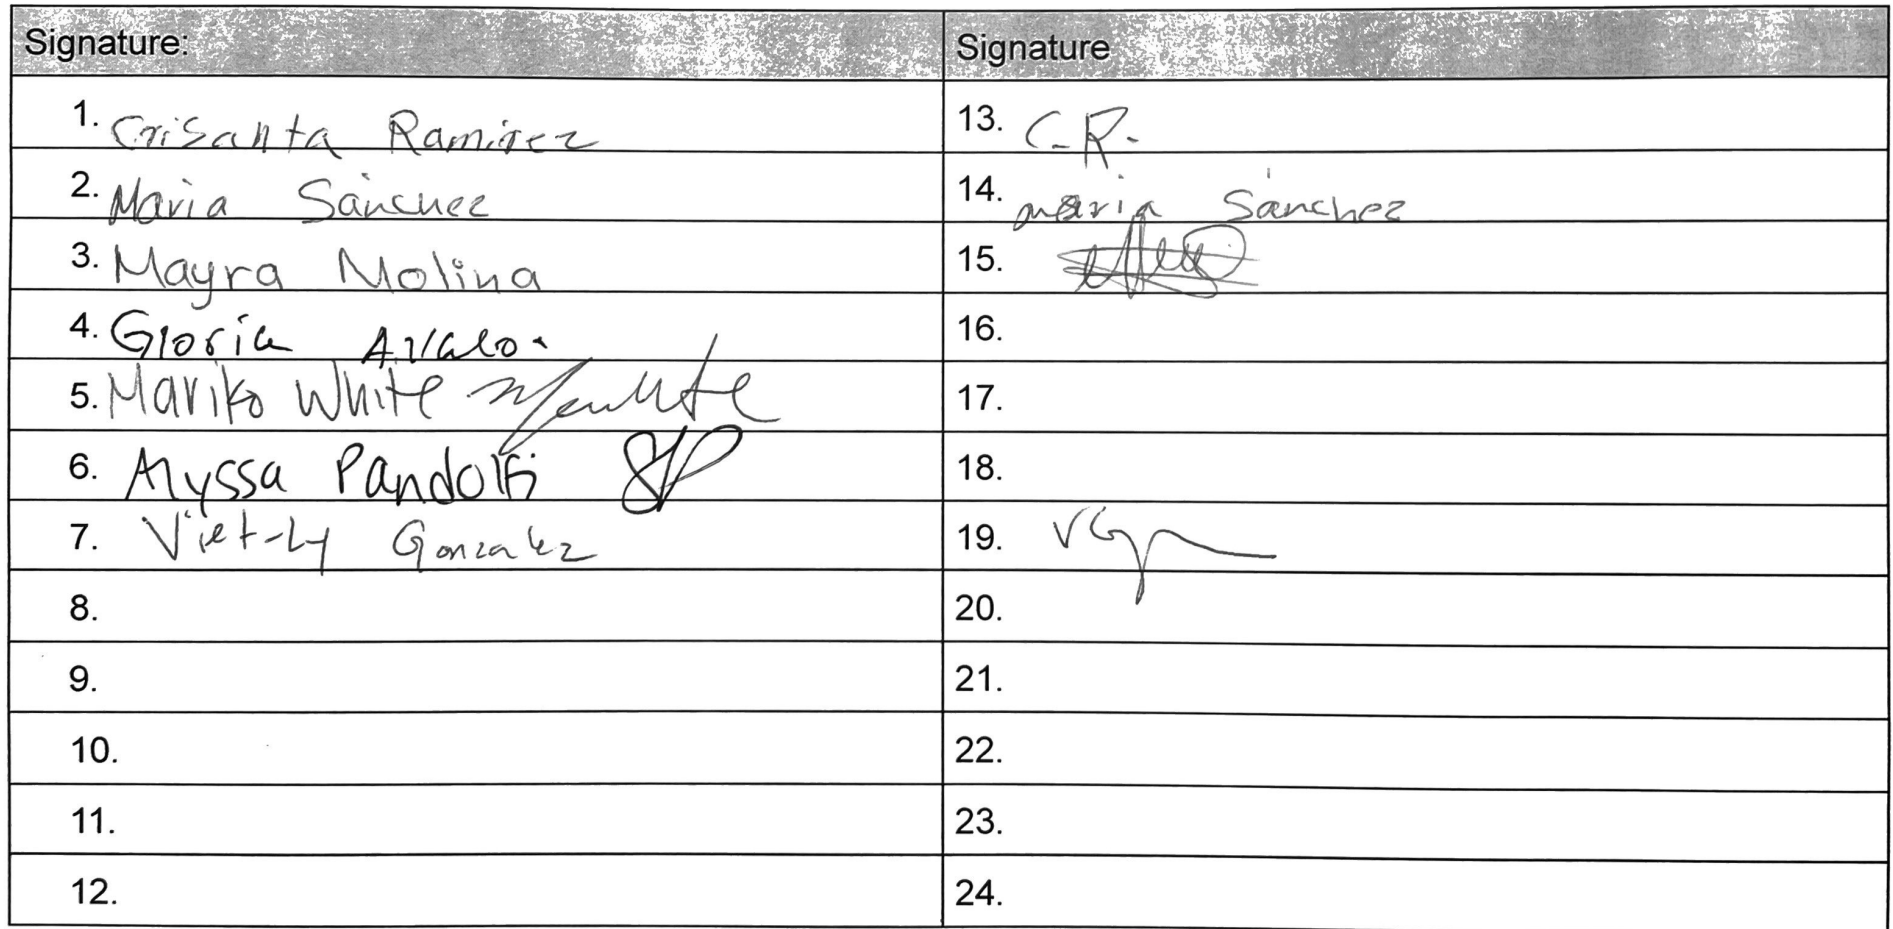 Signature: Signature
1. Crisanta Ramirez 13. C.R.
2. Maria Sánchez 14. maria Sánchez
3. Mayra Molina 15.
4. Gloria Avalo. 16.
5. Mariko White 17.
6. Alyssa Pandolfi 18.
7. Viet-Ly Gonzalez 19.
8. 20.
9. 21.
10. 22.
11. 23.
12. 24.